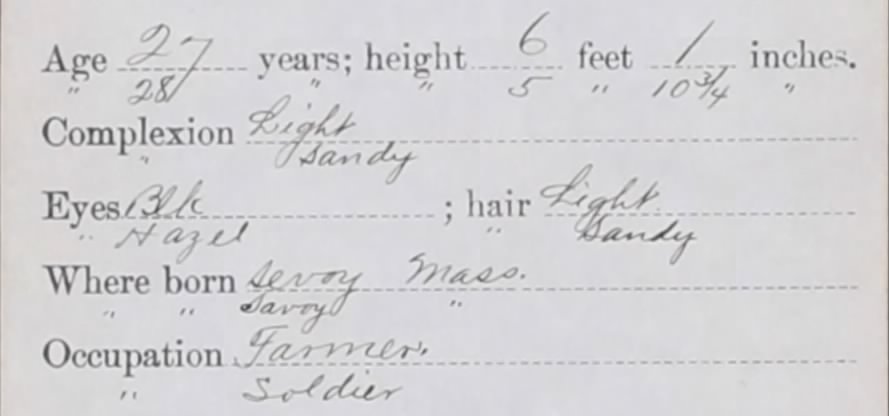 Age 27 years; height 6 feet 1 inches.
" 28 " " 5 " 10 3/4 "
Complexion Light
" Sandy
Eyes Blk ; hair Light
" Hazel " Sandy
Where born Sevoy Mass.
" " Savoy "
Occupation Farmer.
" Soldier